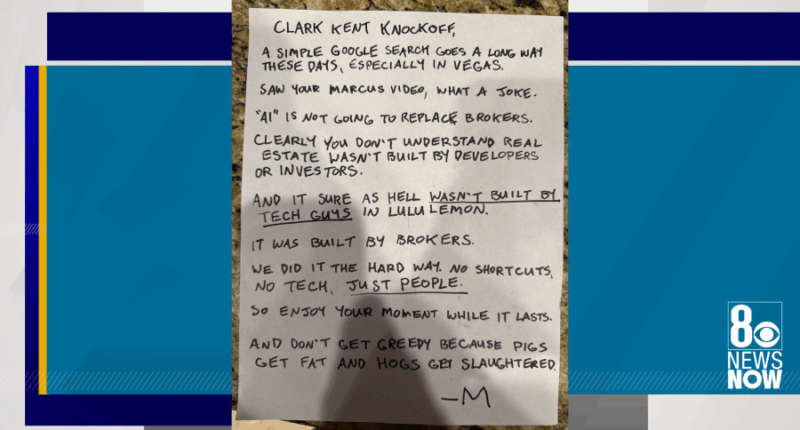 CLARK KENT KNOCKOFF,
A SIMPLE GOOGLE SEARCH GOES A LONG WAY
THESE DAYS, ESPECIALLY IN VEGAS.
SAW YOUR MARCUS VIDEO, WHAT A JOKE.
"AI" IS NOT GOING TO REPLACE BROKERS.
CLEARLY YOU DON'T UNDERSTAND REAL
ESTATE WASN'T BUILT BY DEVELOPERS
OR INVESTORS.
AND IT SURE AS HELL WASN'T BUILT BY
TECH GUYS IN LULU LEMON.
IT WAS BUILT BY BROKERS.
WE DID IT THE HARD WAY. NO SHORTCUTS,
NO TECH, JUST PEOPLE.
SO ENJOY YOUR MOMENT WHILE IT LASTS.
AND DON'T GET GREEDY BECAUSE PIGS
GET FAT AND HOGS GET SLAUGHTERED.
—M
8
NEWS
NOW